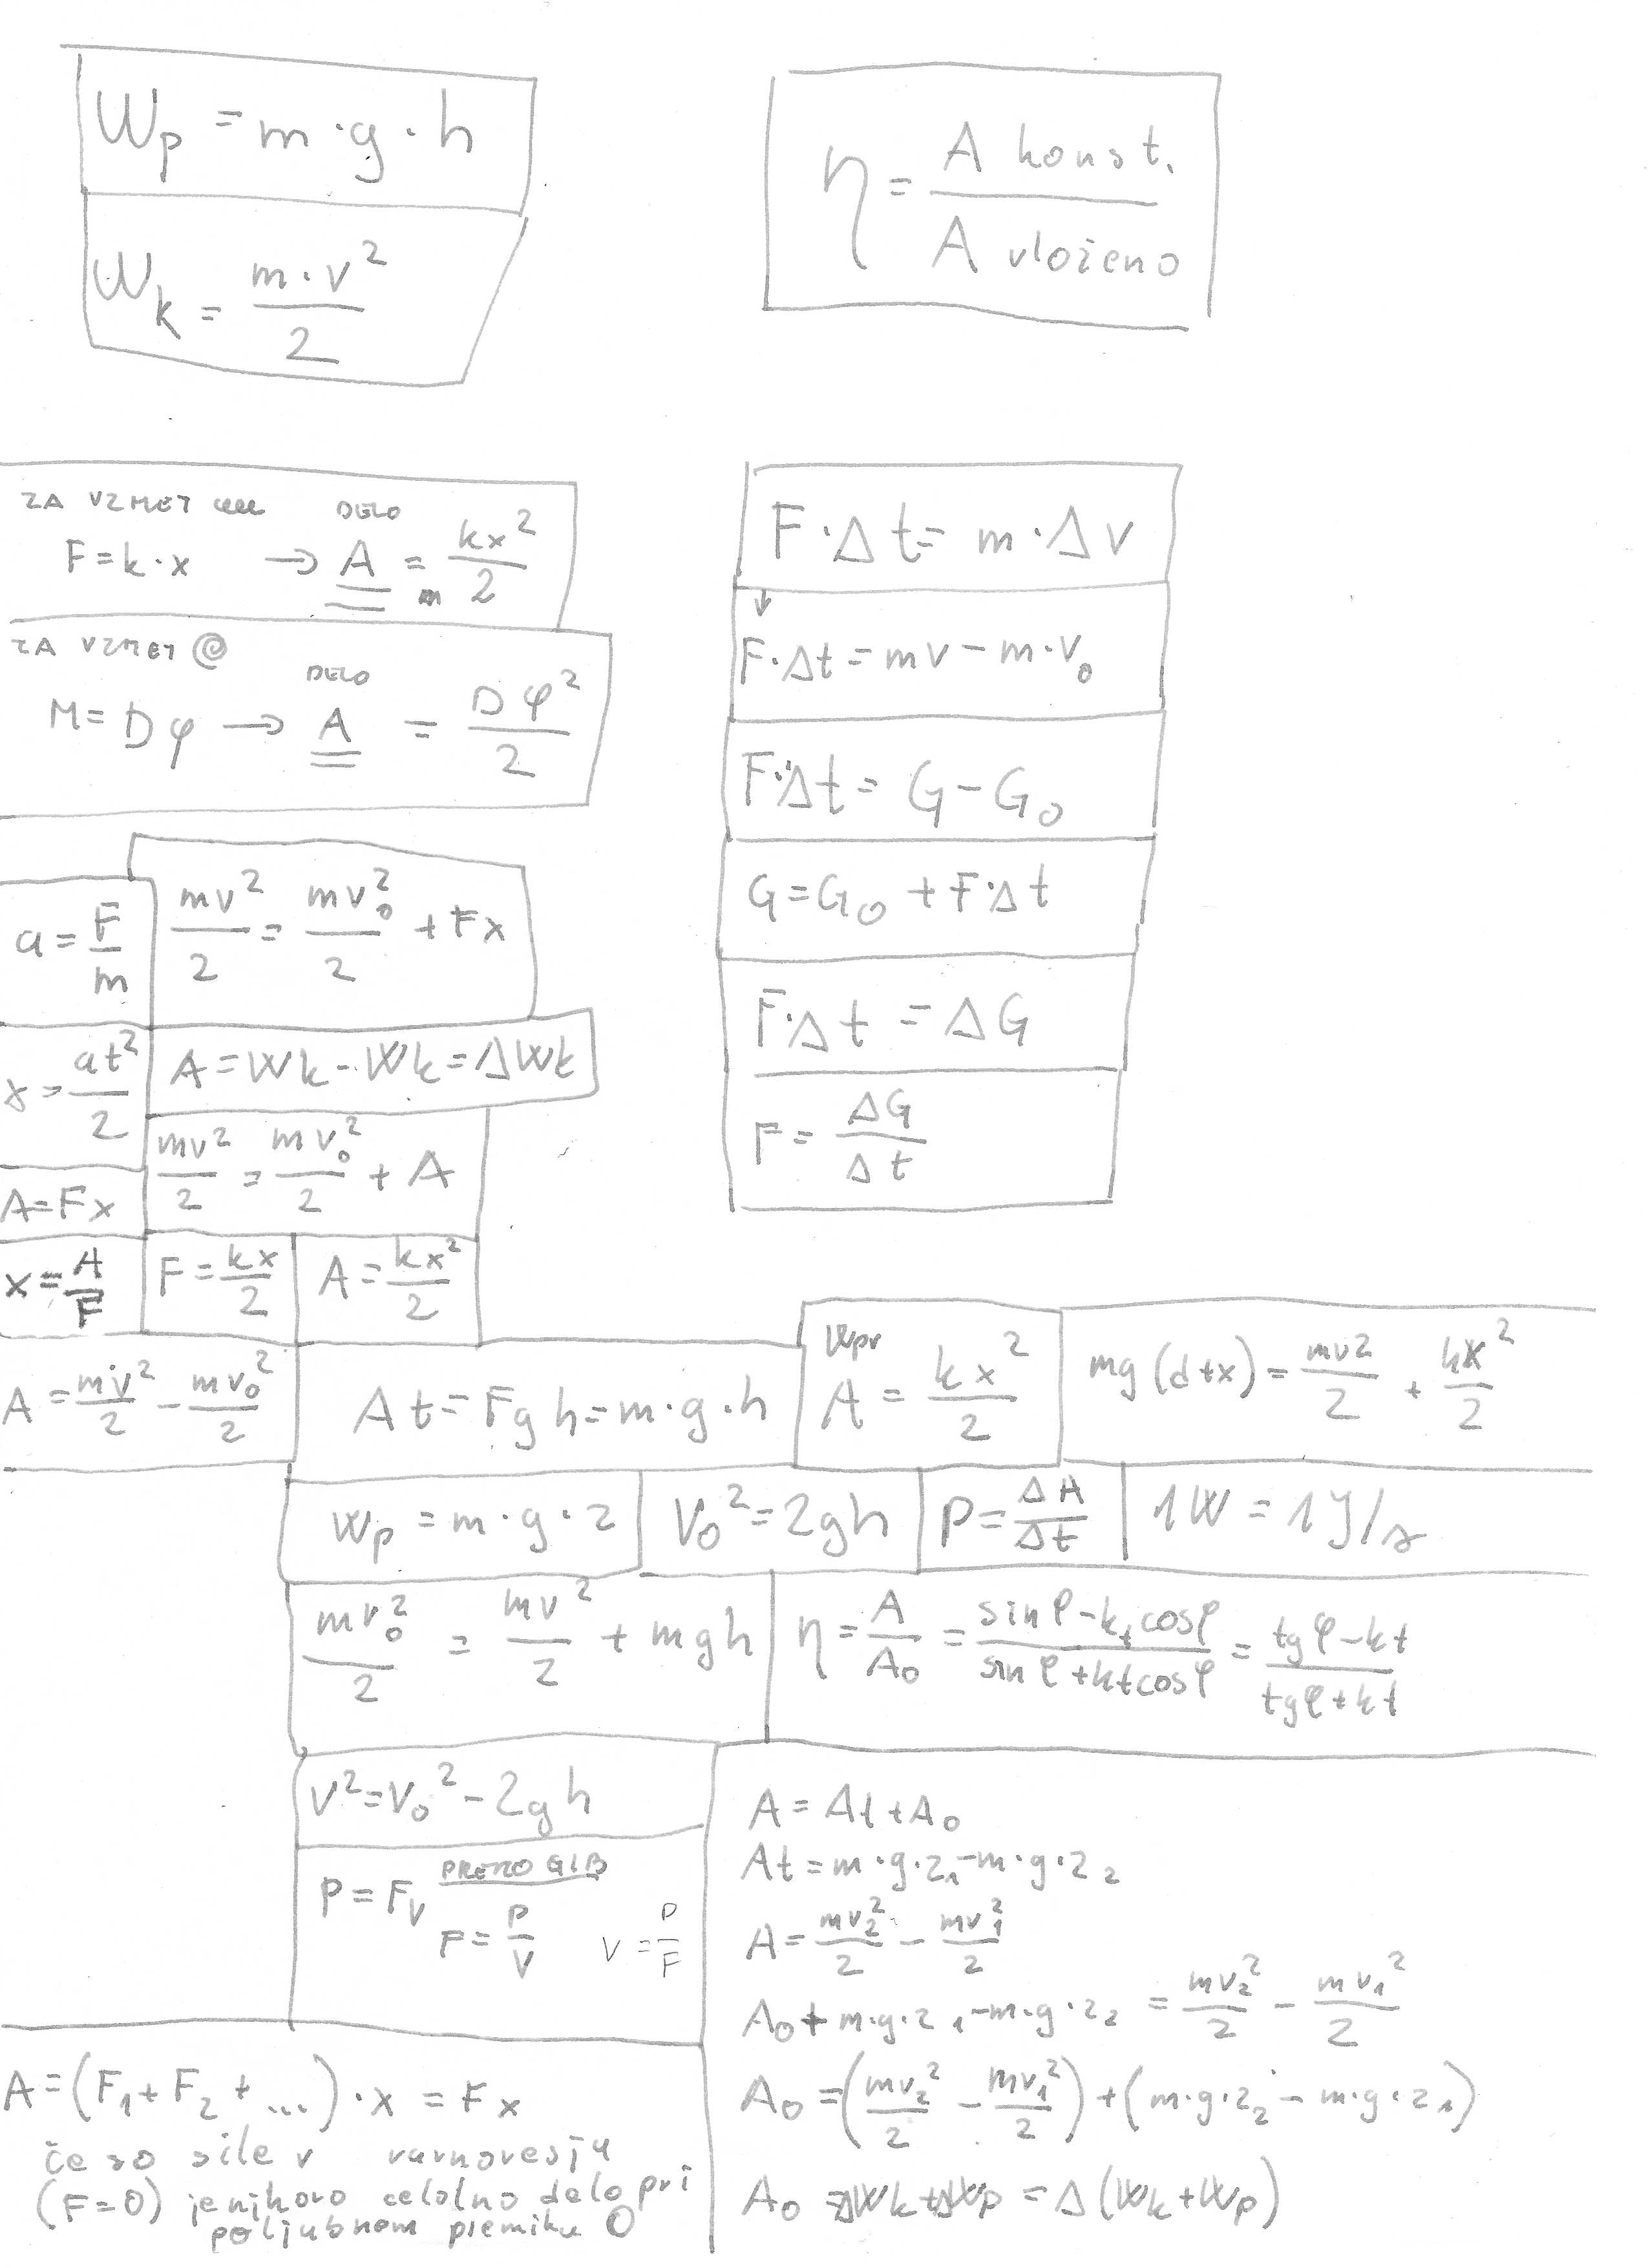 Wp = m·g·h
Wk = m·v²/2
η = A konst. / A vloženo
ZA VZMET
DELO
F = k·x → A = kx²/2
ZA VZMET
DELO
M = Dφ → A = Dφ²/2
F·Δt = m·Δv
↓
F·Δt = mv − m·v₀
F·Δt = G − G₀
G = G₀ + F·Δt
F·Δt = ΔG
F = ΔG/Δt
a = F/m
mv²/2 = mv₀²/2 + Fx
x = at²/2
A = Wk − Wk = ΔWk
mv²/2 = mv₀²/2 + A
A = Fx
x = A/F
F = kx/2
A = kx²/2
A = mv²/2 − mv₀²/2
At = Fgh = m·g·h
Wpr
A = kx²/2
mg(d+x) = mv²/2 + kx²/2
Wp = m·g·z
V₀² = 2gh
P = ΔA/Δt
1W = 1J/s
mv₀²/2 = mv²/2 + mgh
η = A/A₀ = (sinφ − kt cosφ)/(sinφ + kt cosφ) = (tgφ − kt)/(tgφ + kt)
V² = V₀² − 2gh
P = Fv
PREMO GIB
F = P/V
V = P/F
A = At + A₀
At = m·g·z₁ − m·g·z₂
A = mv₂²/2 − mv₁²/2
A₀ + m·g·z₁ − m·g·z₂ = mv₂²/2 − mv₁²/2
A₀ = (mv₂²/2 − mv₁²/2) + (m·g·z₂ − m·g·z₁)
A₀ = ΔWk + ΔWp = Δ(Wk + Wp)
A = (F₁ + F₂ + ...)·x = Fx
če so sile v ravnovesju
(F=0) je njihovo celotno delo pri
poljubnem premiku 0